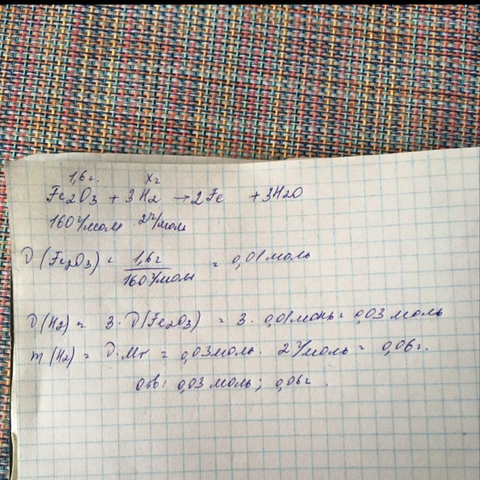 1,6 г. хг
Fe2O3 + 3H2 → 2Fe + 3H2O
160 г/моль 2г/моль
ν(Fe2O3) = 1,6г / 160 г/моль = 0,01 моль
ν(H2) = 3 · ν(Fe2O3) = 3 · 0,01 моль = 0,03 моль
m(H2) = ν · Mr = 0,03 моль · 2 г/моль = 0,06 г.
Отв: 0,03 моль; 0,06 г.